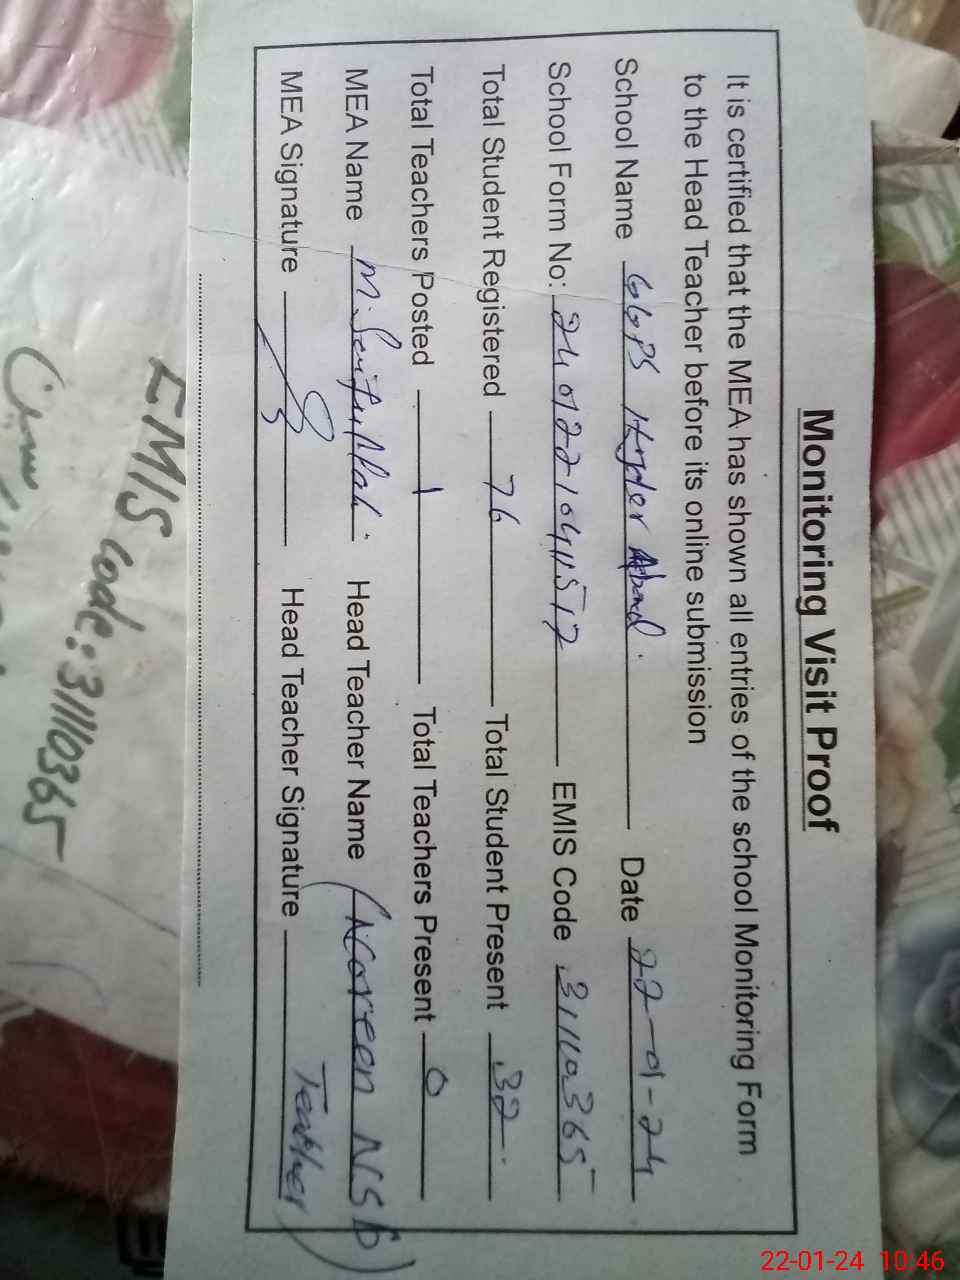 Monitoring Visit Proof
It is certified that the MEA has shown all entries of the school Monitoring Form
to the Head Teacher before its online submission
School Name GGPS Hyder Abad. Date 22-01-24
School Form No: 2401221041512 EMIS Code 31110365
Total Student Registered 76 Total Student Present 32
Total Teachers Posted 1 Total Teachers Present 0
MEA Name M. Saifullah. Head Teacher Name (Noreen NSB
MEA Signature Head Teacher Signature Teacher)
EMIS code: 31110365
22-01-24 10:46